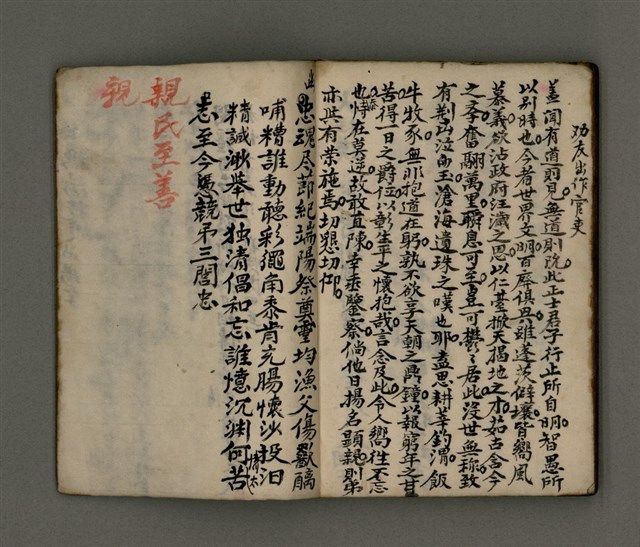 劝友出作官吏
盖闻有道則見無道則隐此正士君子行止所自明智愚所
以别時也今者世界文明百廢俱興雖蓬茨僻壤皆嚮風
慕義欲沾政府汪濊之恩以仁臺掀天揭地之才茹古含今
之學奮翮萬里瞬息可至豈可欝欝居此沒世無稱致
有荆山泣血玉滄海遺珠之嘆也耶盍思耕莘釣渭飯
牛牧豕無非抱道在躬孰不欲享天朝之鼎鐘以報窮年之甘
苦得一日之爵位以彰生平之懷抱哉言念及此令人嚮往不忘
也忝恃在莫逆故敢直陳幸垂鑒察倘他日揚名顯親則弟
亦與有荣施焉切懇切仰
忠魂尽節紀端陽祭奠靈均漁父傷歠醨
哺糟誰動聽彩繩角黍肯充腸懷沙投汨
精誠渺舉世独清倡和忘誰憶沉渊何苦
志至今馬競弔三閭忠
情太
親民至善
親